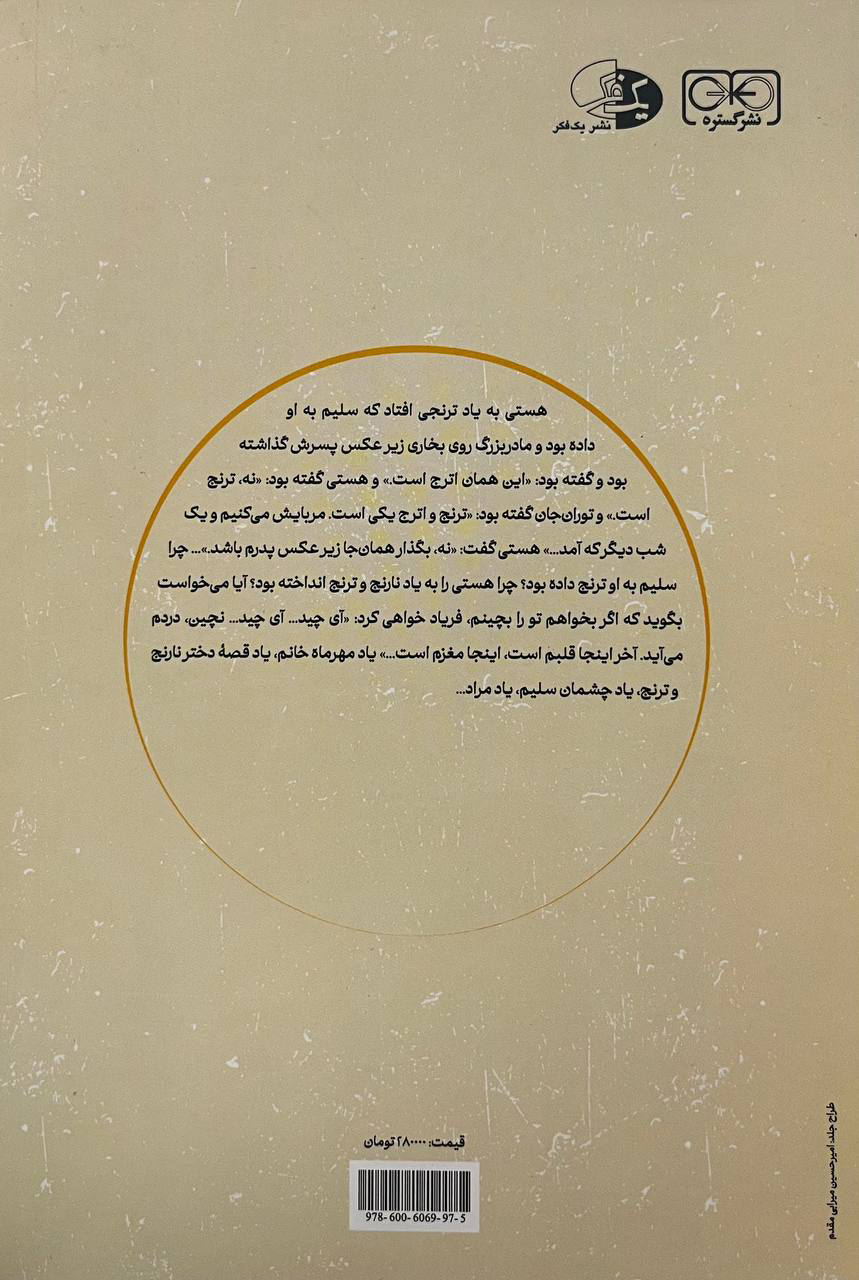 نشر گستره
یک فکر
نشر یک‌فکر
هستی به یاد ترنجی افتاد که سلیم به او
داده بود و مادربزرگ روی بخاری زیر عکس پسرش گذاشته
بود و گفته بود: «این همان اترج است.» و هستی گفته بود: «نه، ترنج
است.» و توران‌جان گفته بود: «ترنج و اترج یکی است. مربایش می‌کنیم و یک
شب دیگر که آمد...» هستی گفت: «نه، بگذار همان‌جا زیر عکس پدرم باشد.»... چرا
سلیم به او ترنج داده بود؟ چرا هستی را به یاد نارنج و ترنج انداخته بود؟ آیا می‌خواست
بگوید که اگر بخواهم تو را بچینم، فریاد خواهی کرد: «آی چید... آی چید... نچین، دردم
می‌آید. آخر اینجا قلبم است، اینجا مغزم است...» یاد مهرماه خانم، یاد قصهٔ دختر نارنج
و ترنج، یاد چشمان سلیم، یاد مراد...
قیمت: ۲۸۰۰۰۰ تومان
978-600-6069-97-5
طراح جلد: امیرحسین میرابی مقدم